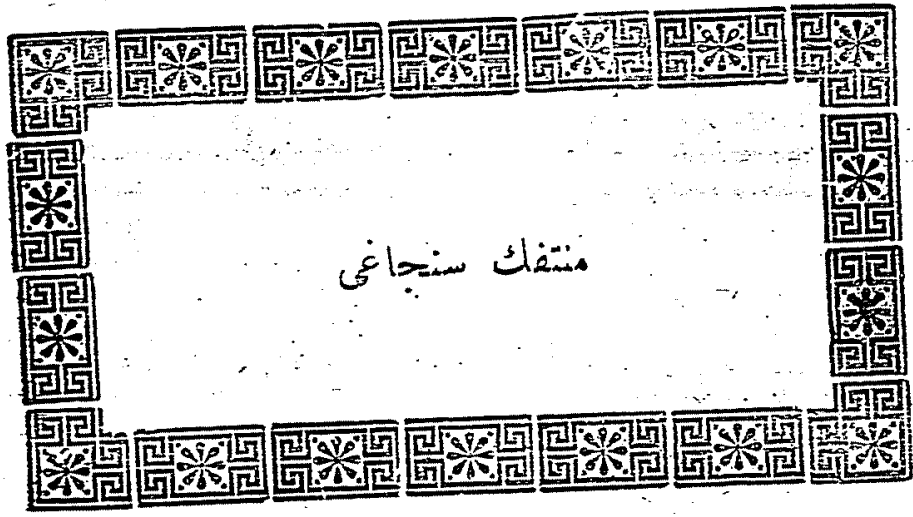 منتفك سنجاغى